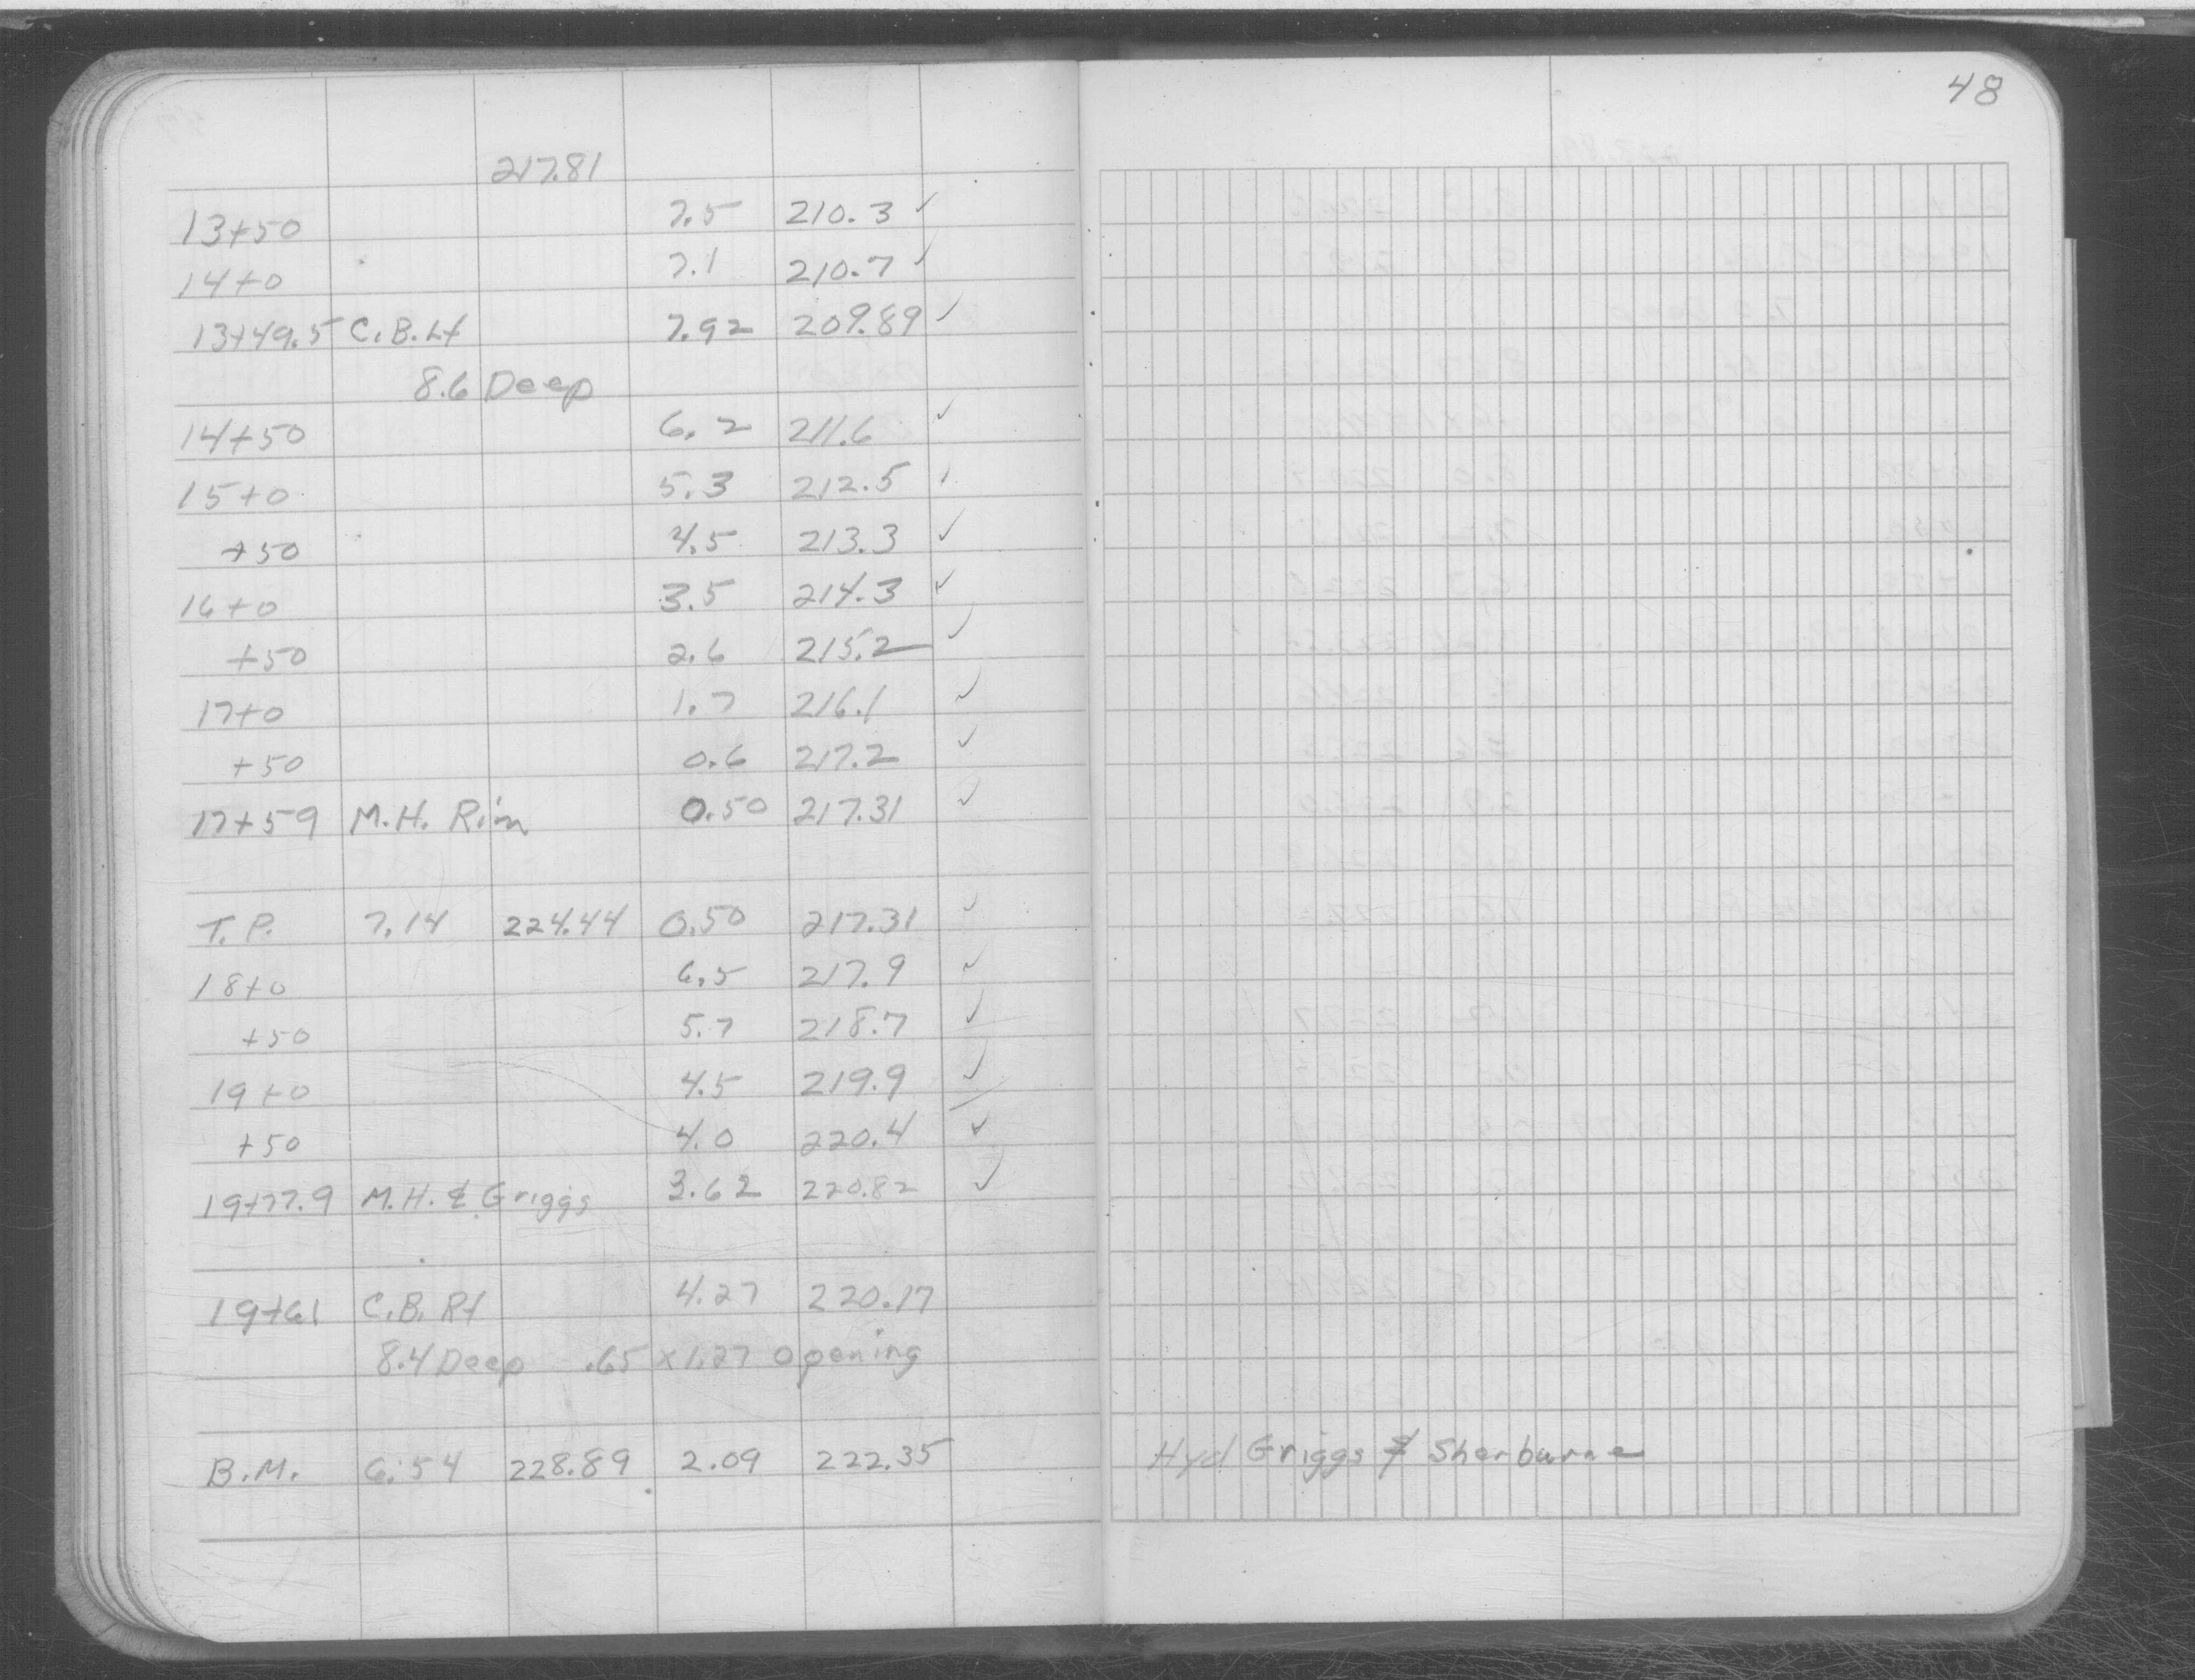 48
217.81
13+50 7.5 210.3 ✓
14+0 7.1 210.7 ✓
13+49.5 C.B. Lt 7.92 209.89 ✓
8.6 Deep
14+50 6.2 211.6 ✓
15+0 5.3 212.5 ✓
+50 4.5 213.3 ✓
16+0 3.5 214.3 ✓
+50 2.6 215.2 ✓
17+0 1.7 216.1 ✓
+50 0.6 217.2 ✓
17+59 M.H. Rim 0.50 217.31 ✓
T.P. 7.14 224.44 0.50 217.31 ✓
18+0 6.5 217.9 ✓
+50 5.7 218.7 ✓
19+0 4.5 219.9 ✓
+50 4.0 220.4 ✓
19+77.9 M.H. ℄ Griggs 3.62 220.82 ✓
19+61 C.B. Rt 4.27 220.17
8.4 Deep .65 x 1.27 opening
B.M. 6.54 228.89 2.09 222.35 Hyd Griggs & Sherburne